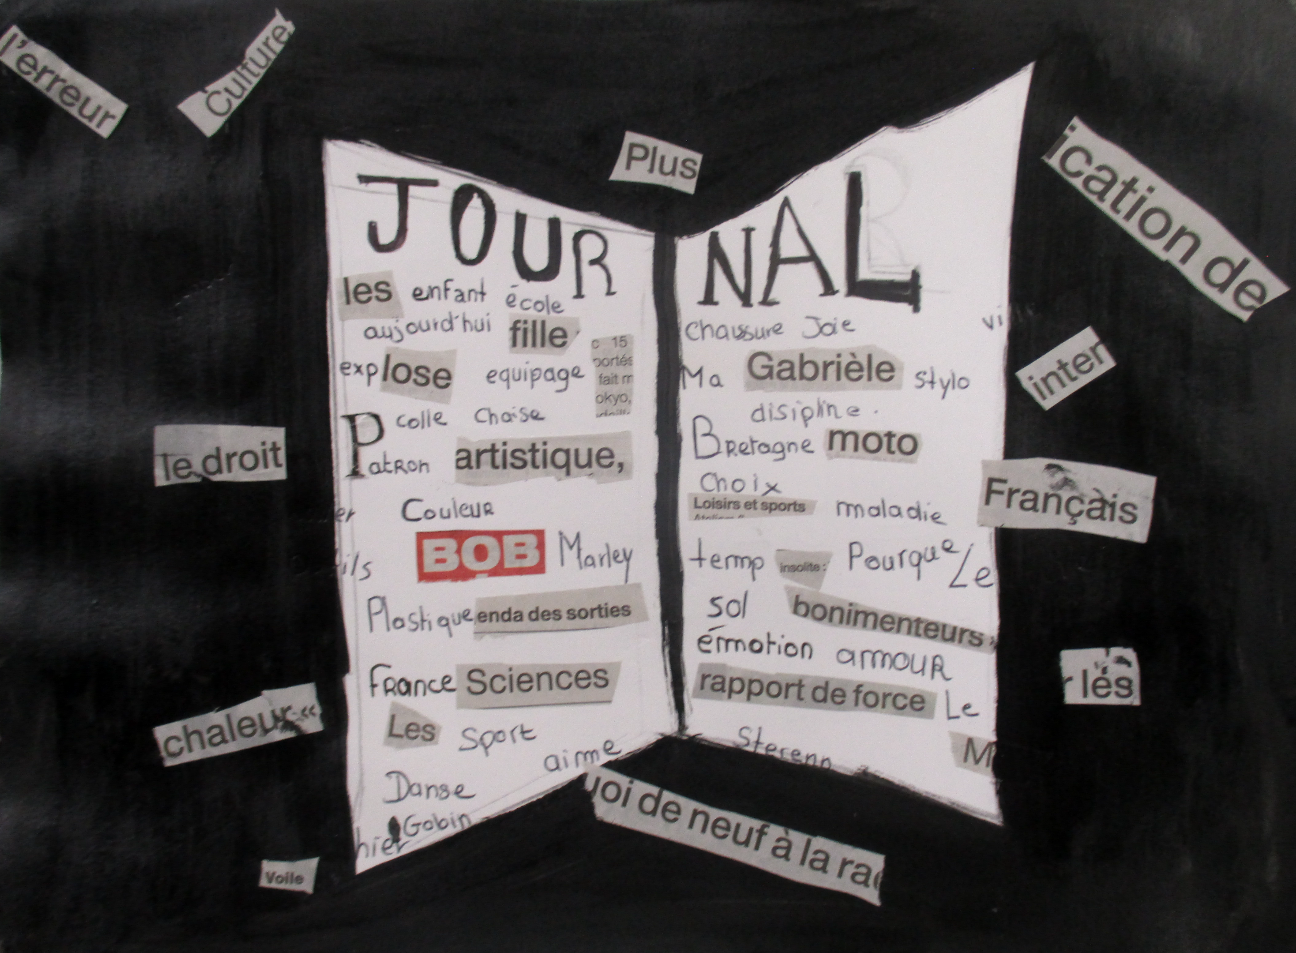 l'erreur
Culture
Plus
ication de
inter
Français
lés
le droit
chaleur «
Voile
uoi de neuf à la rac
JOURNAL
les enfant école
aujourd'hui fille
explose equipage
c 15
portés
fait m
okyo,
colle Chaise
Patron artistique,
er Couleur
ils BOB Marley
Plastique enda des sorties
france Sciences
Les Sport
aime
Danse
Gobin
hier
Chaussure Joie vi
Ma Gabrièle stylo
disipline.
Bretagne moto
Choix
Loisirs et sports maladie
temp insolite : Pourque Le
sol bonimenteurs »
érmotion armour
rapport de force Le
Sterenn M